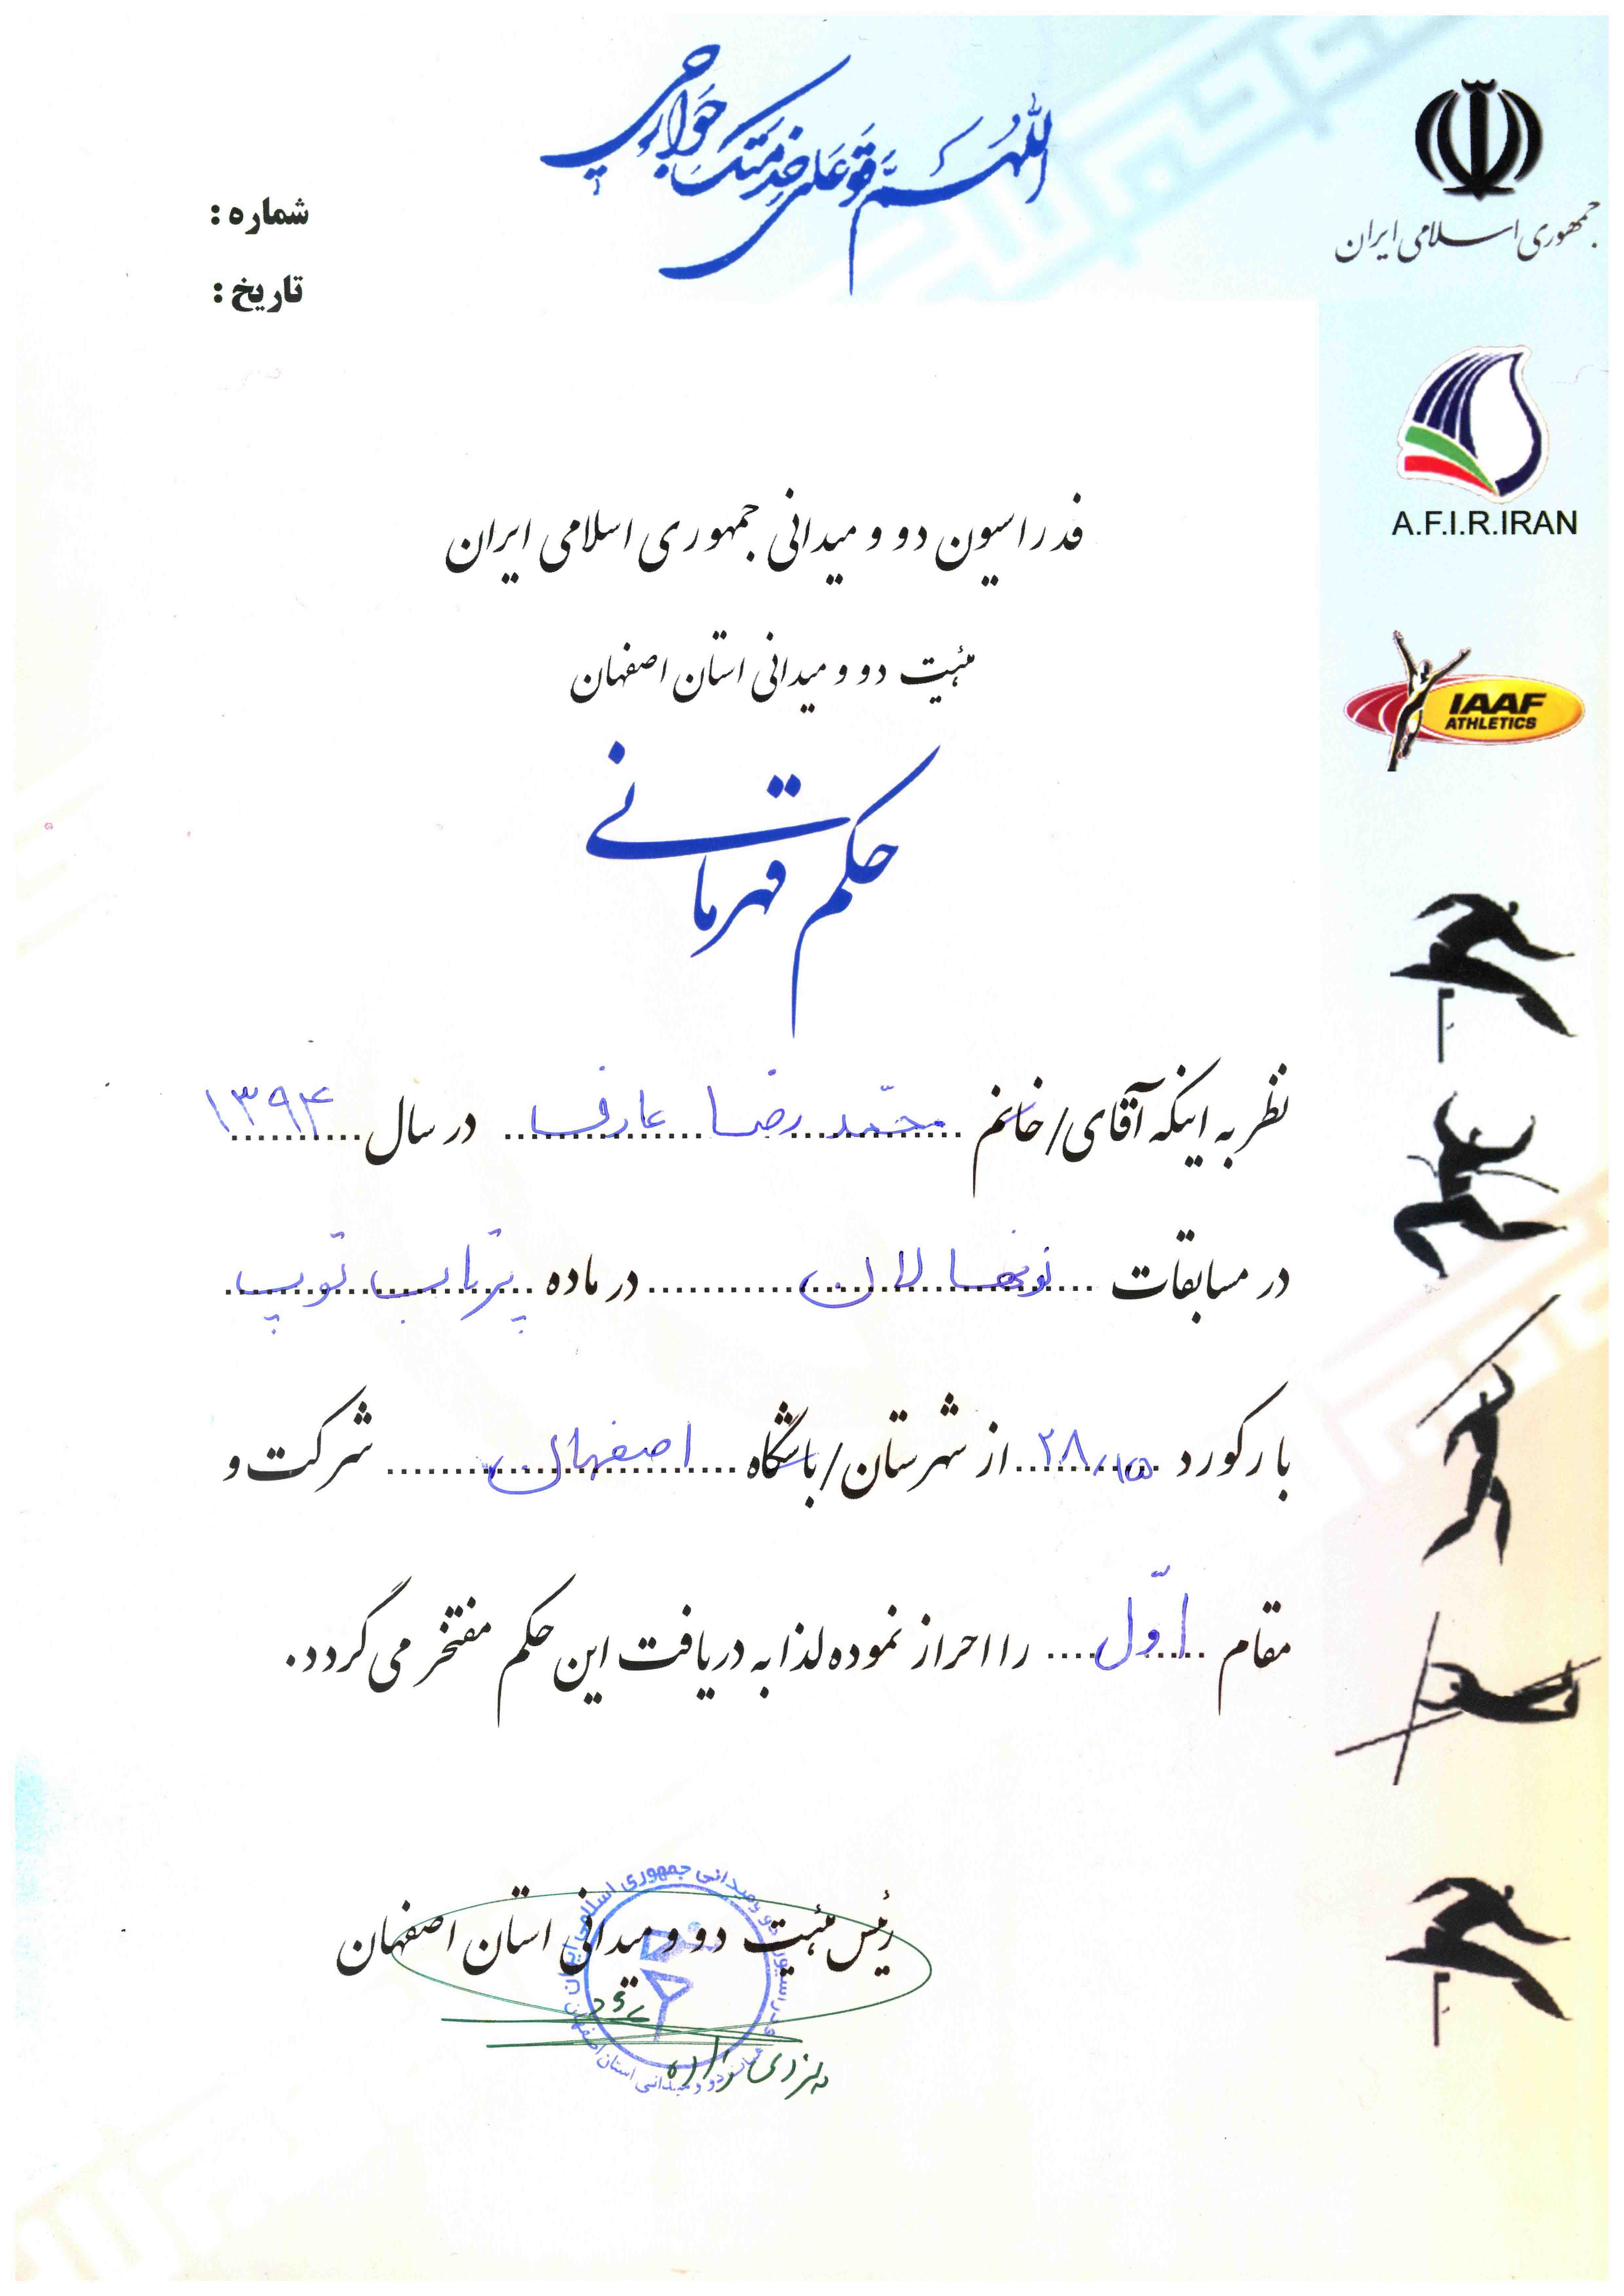 اللهم قو على خدمتك جوارحي
جمهوری اسلامی ایران
شماره :
تاریخ :
A.F.I.R.IRAN
IAAF
ATHLETICS
فدراسیون دو و میدانی جمهوری اسلامی ایران
هیئت دو و میدانی استان اصفهان
حکم قهرمانی
نظر به اینکه آقای/خانم محمّد رضا عارف در سال ۱۳۹۴
در مسابقات نونهالان در ماده پرتاب توپ
با رکورد ۲۸/۱۵ از شهرستان/باشگاه اصفهان شرکت و
مقام اوّل را احراز نموده لذا به دریافت این حکم مفتخر می گردد.
رئیس هیئت دو و میدانی استان اصفهان
فدراسیون دو و میدانی جمهوری اسلامی ایران
هیئت دو و میدانی استان اصفهان